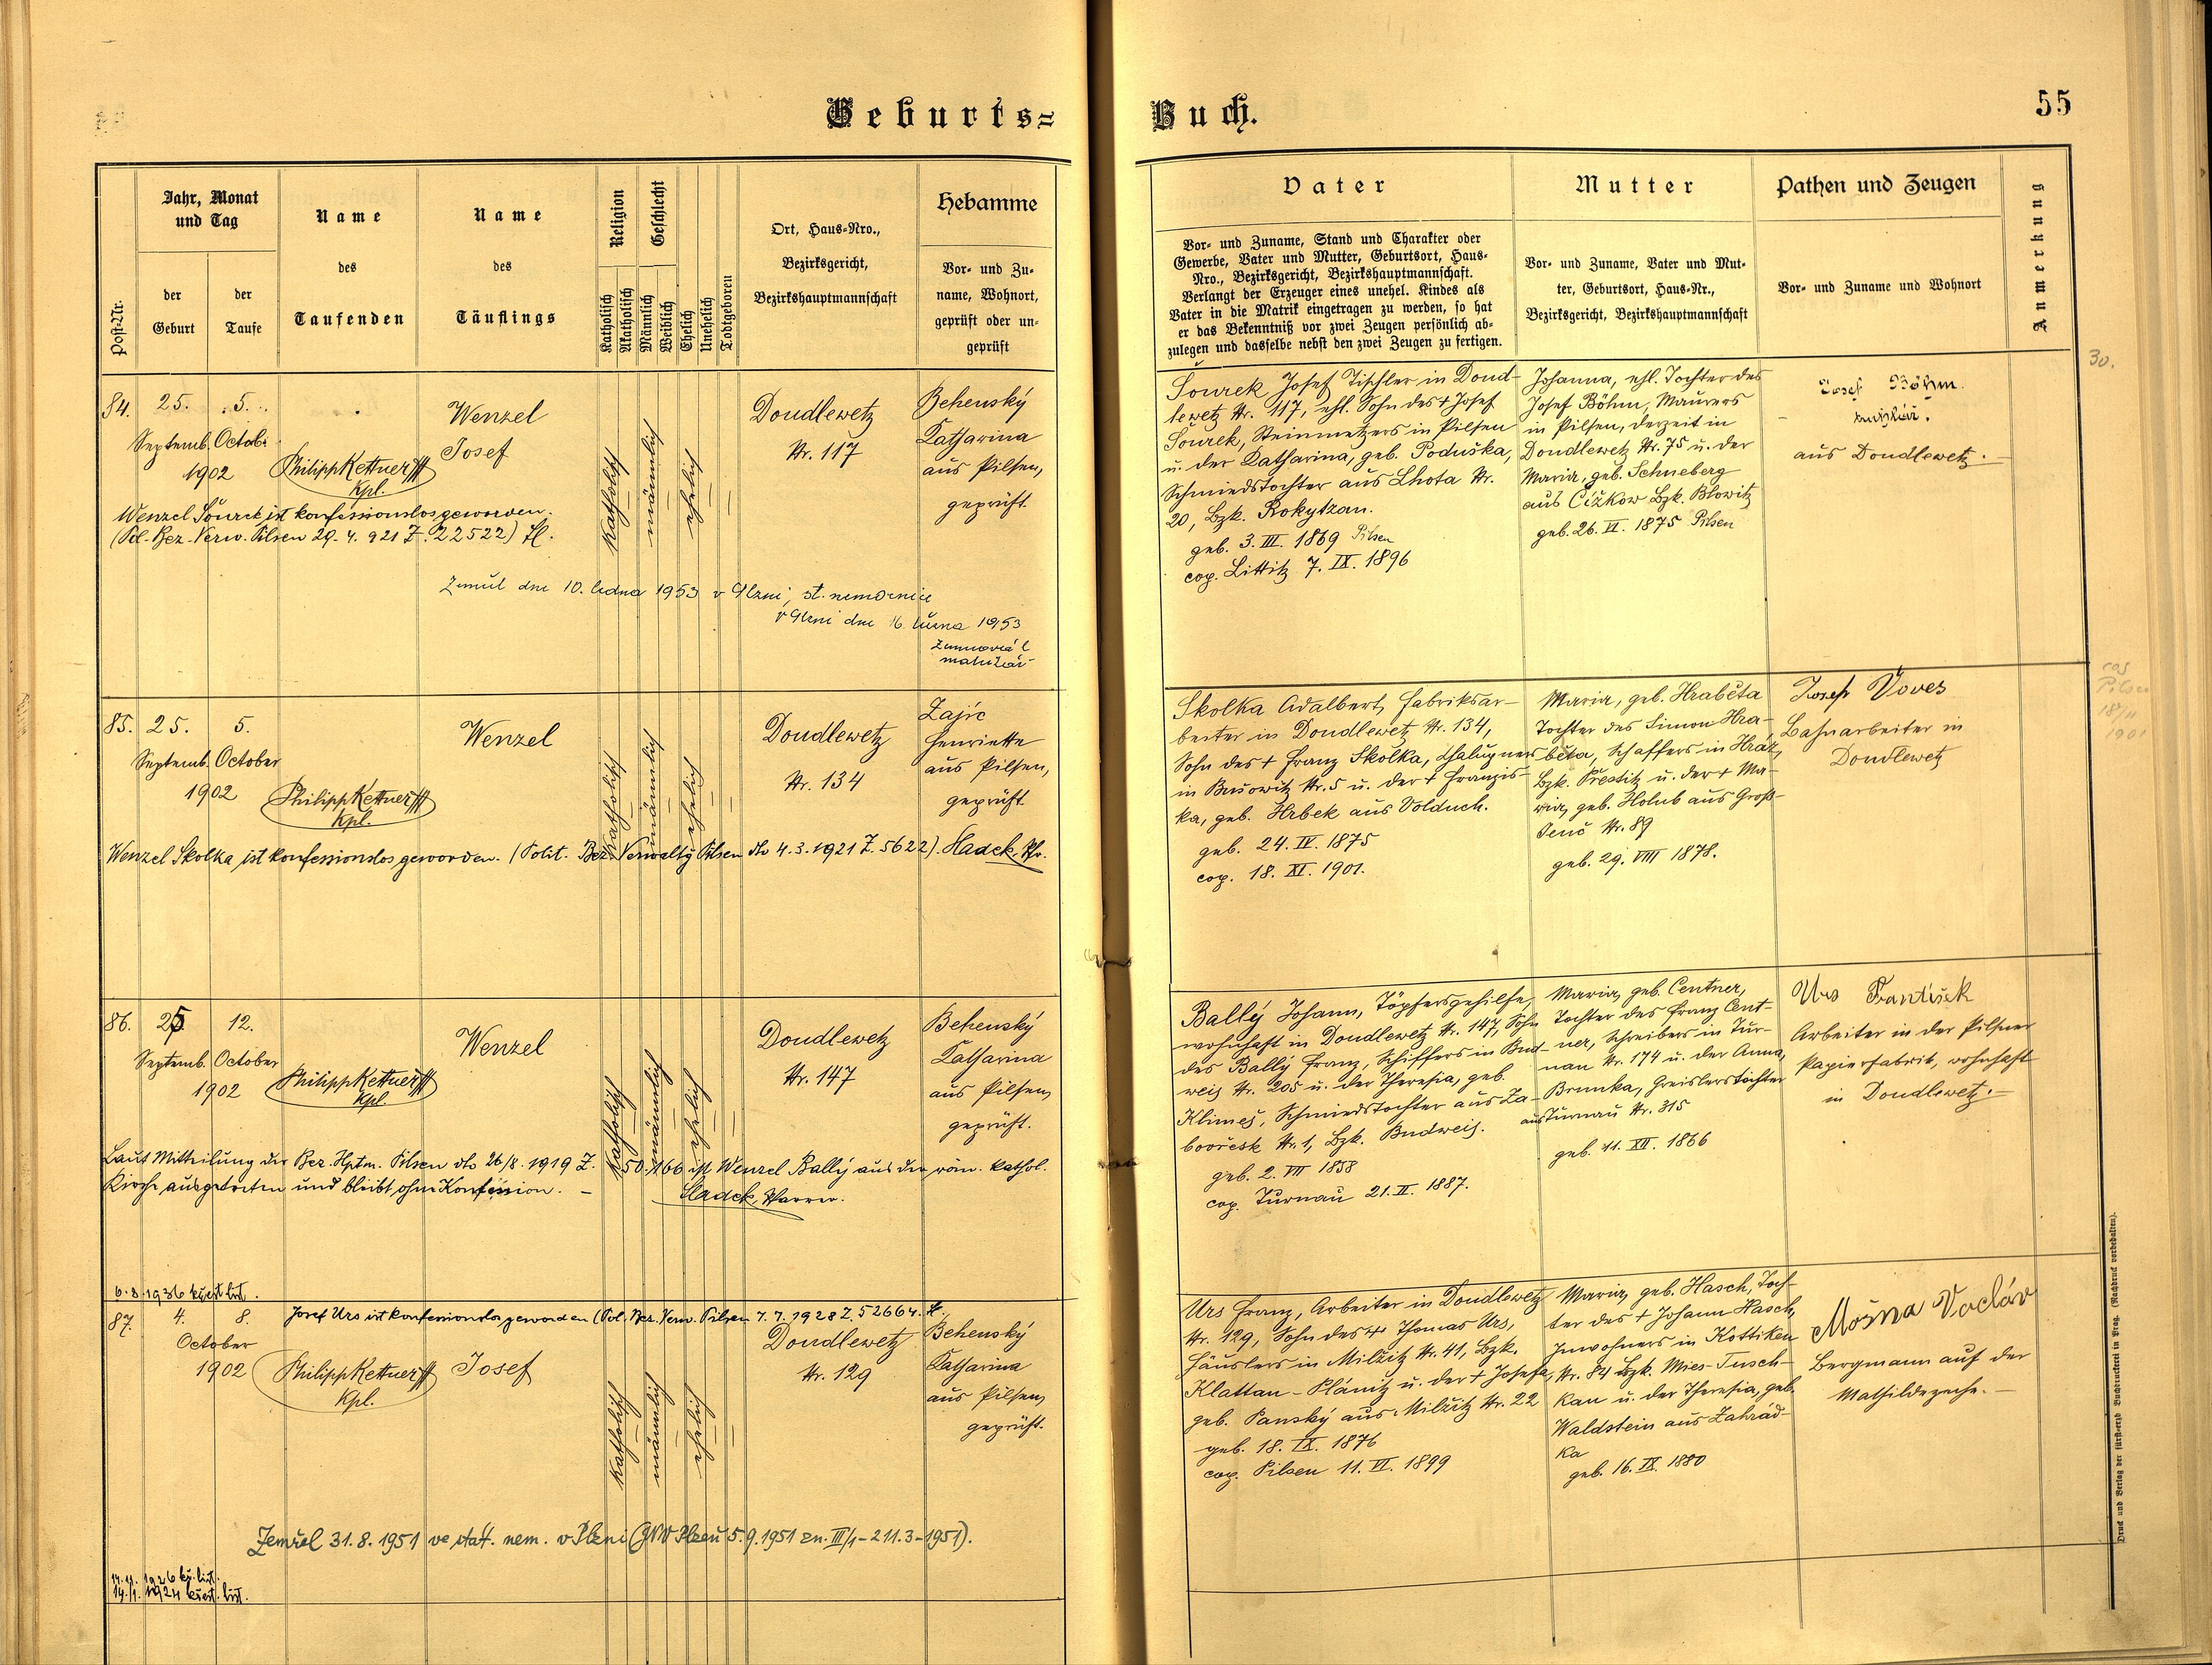 Geburts=
Buch.
55
Jahr, Monat
und Tag
Name
des
Taufenden
Name
des
Täuflings
Religion
Geschlecht
Ort, Haus=Nro.,
Bezirksgericht,
Bezirkshauptmannschaft
Hebamme
Post=Nr.
der
Geburt
der
Taufe
Katholisch
Akatholisch
Männlich
Weiblich
Ehelich
Unehelich
Todtgeboren
Vor= und Zu=
name, Wohnort,
geprüft oder un=
geprüft
Vater
Vor= und Zuname, Stand und Charakter oder
Gewerbe, Vater und Mutter, Geburtsort, Haus=
Nro., Bezirksgericht, Bezirkshauptmannschaft.
Verlangt der Erzeuger eines unehel. Kindes als
Vater in die Matrik eingetragen zu werden, so hat
er das Bekenntniß vor zwei Zeugen persönlich ab=
zulegen und dasselbe nebst den zwei Zeugen zu fertigen.
Mutter
Vor= und Zuname, Vater und Mut=
ter, Geburtsort, Haus=Nr.,
Bezirksgericht, Bezirkshauptmannschaft
Pathen und Zeugen
Vor= und Zuname und Wohnort
Anmerkung
84.
25.
Septemb.
5.
Octob.
1902
Philipp Kettner
Kpl.
Wenzel
Josef
katholisch
männlich
ehelich
Doudlewetz
Nr. 117
Behenský
Katharina
aus Pilsen,
geprüft
Wenzel Šourek ist konfessionslos geworden.
(Pol. Bez. Verw. Pilsen 29. 4. 921 Z. 22522) Sl.
Zemřel dne 10. ledna 1953 v Plzni, st. nemocnice
v Plzni dne 16. února 1953
matrikář
Šourek Josef Tischler in Doud-
lewetz Nr. 117, ehl. Sohn des + Josef
Šourek, Steinmetzers in Pilsen
u. der Katharina, geb. Poduška,
Schmiedstochter aus Lhota Nr.
20, Bzk. Rokytzan.
geb. 3. III. 1869 Pilsen
cop. Littitz 7. IX. 1896
Johanna, ehl. Tochter des
Josef Böhm, Maurers
in Pilsen, derzeit in
Doudlewetz Nr. 75 u. der
Maria, geb. Schneberg
aus Čížkow Bzk. Blowitz
geb. 26. VI. 1875 Pilsen
Josef Böhm
aus Doudlewetz.
30.
85.
25.
Septemb.
5.
October
1902
Philipp Kettner
Kpl.
Wenzel
katholisch
männlich
ehelich
Doudlewetz
Nr. 134
Zajíc
Henriette
aus Pilsen,
geprüft
Wenzel Skolka ist konfessionslos geworden. (Polit. Bez. Verwaltg Pilsen dto 4. 3. 1921 Z. 5622). Sladek, Pfr.
Skolka Adalbert, Fabriksar-
beiter in Doudlewetz Nr. 134,
Sohn des + Franz Skolka, Chalupners
in Bušowitz Nr. 5 u. der + Franzis-
ka, geb. Hrbek aus Volduch.
geb. 24. IV. 1875
cop. 18. XI. 1901.
Maria, geb. Hraběta
Tochter des Simon Hra-
běta, Schaffers in Hráz,
Bzk. Přestitz u. der + Ma-
ria, geb. Holub aus Groß-
Jenč Nr. 89
geb. 29. VIII 1878.
Josef Voves
Bahnarbeiter in
Doudlewetz
cop
Pilsen
18/11
1901
86.
25
Septemb.
12.
October
1902
Philipp Kettner
Kpl.
Wenzel
katholisch
männlich
ehelich
Doudlewetz
Nr. 147
Behenský
Katharina
aus Pilsen,
geprüft.
Laut Mitteilung der Bez. Hptm. Pilsen dto 26/8. 1919 Z. 50.166 ist Wenzel Ballý aus der röm. kathol.
Kirche ausgetreten und bleibt ohne Konfession. –
Sladek, Pfarrer.
Ballý Johann, Töpfersgehilfe,
wohnhaft in Doudlewetz Nr. 147, Sohn
des Ballý Franz, Schiffers in Bud-
weis Nr. 205 u. der Theresia, geb.
Klimeš, Schmiedstochter aus Za-
boořesk Nr. 1, Bzk. Budweis.
geb. 2. VII 1858
cop. Turnau 21. II. 1887.
Maria, geb. Centner,
Tochter des Franz Cent-
ner, Schreibers in Tur-
nau Nr. 174 u. der Anna,
Brunka, Greislerstochter
aus Turnau Nr. 315
geb. 11. XII. 1866
Urs František
Arbeiter in der Pilsner
Papierfabrik, wohnhaft
in Doudlewetz.
6. 3. 1936 křest. list.
87.
4.
October
8.
1902
Josef Urs ist konfessionslos geworden (Pol. Bez. Verw. Pilsen 7. 7. 1928 Z. 52664. Sl.
Philipp Kettner
Kpl.
Josef
katholisch
männlich
ehelich
Doudlewetz
Nr. 129
Behenský
Katharina
aus Pilsen,
geprüft.
Zemřel 31. 8. 1951 ve stát. nem. v Plzni (JNV Plzeň 5. 9. 1951 zn. III/1 – 211.3 – 1951).
1926 kř. list.
14./1. 1924 křest. list.
Urs Franz, Arbeiter in Doudlewetz
Nr. 129, Sohn des + Thomas Urs,
Häuslers in Milžitz Nr. 41, Bzk.
Klattau – Plánitz u. der + Josefa,
geb. Panský aus Milžitz Nr. 22
geb. 18. IX. 1876
cop. Pilsen 11. VI. 1899
Maria, geb. Hasch, Toch-
ter des + Johann Hasch,
Inwohners in Kottiken
Nr. 84 Bzk. Mies-Tusch-
kau u. der Theresia, geb.
Waldstein aus Zahrád-
ka
geb. 16. IX. 1880
Mošna Václáv
Bergmann auf der
Mathildezeche. –
Druck und Verlag der fürsterzb. Buchdruckerei in Prag. (Nachdruck vorbehalten).